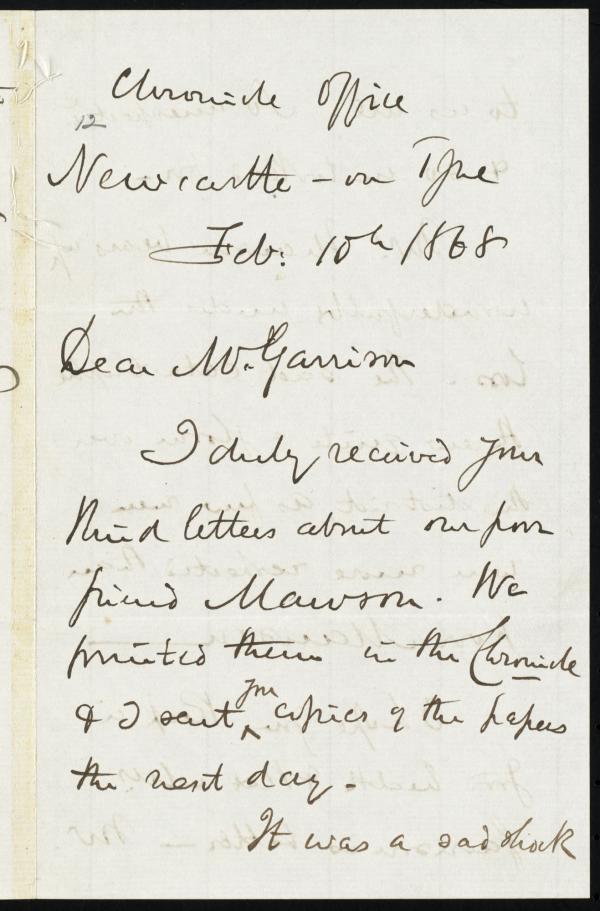 Chronicle Office
12
Newcastle-on Tyne
Feb: 10th 1868
Dear Mr. Garrison
I duly received your
kind letters about our poor
friend Mawson. We
printed them in the Chronicle
& I sent you copies of the papers
the next day.
It was a sad shock